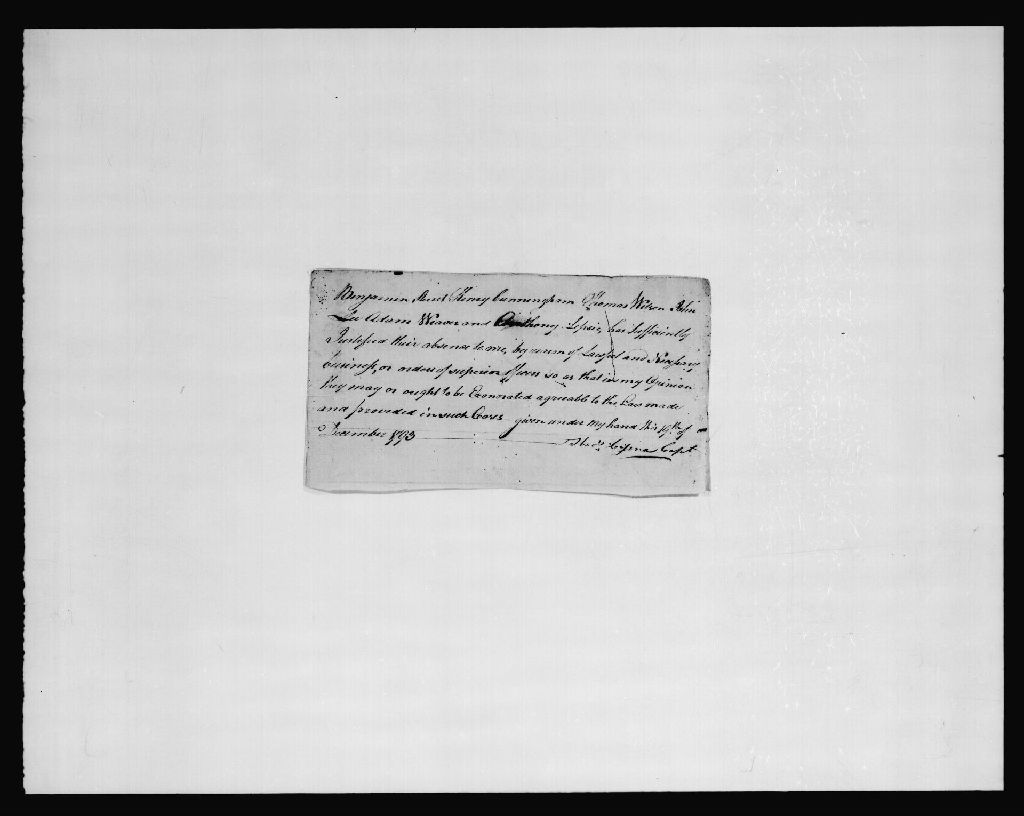 Benjamin Henry Cunningham Thomas Wilson John
Lee Adam Weaver and Anthony has sufficiently
Justified their absence to me, by means of Lawful and Necessary
business, or orders of superior officers so as that in my Opinion
they may or ought to be Exonerated agreeable to the Law made
and provided in such Cases given under my hand this 19th of
December 1793 Capt